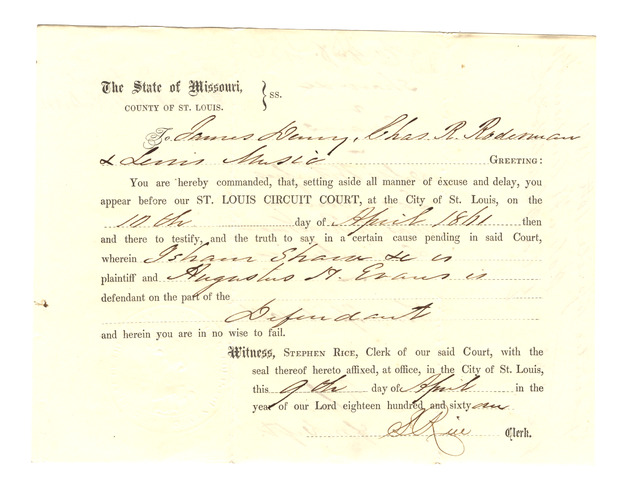 The State of Missouri, } ss.
COUNTY OF ST. LOUIS.
To James Denny, Chas. R. Roderman
& Lewis Music GREETING:
You are hereby commanded, that, setting aside all manner of excuse and delay, you
appear before our ST. LOUIS CIRCUIT COURT, at the City of St. Louis, on the
10th day of April 1861 then
and there to testify, and the truth to say in a certain cause pending in said Court,
wherein Isham Shaw &c is
plaintiff and Augustus H. Evans is
defendant on the part of the
Defendant
and herein you are in no wise to fail.
Witness, STEPHEN RICE, Clerk of our said Court, with the
seal thereof hereto affixed, at office, in the City of St. Louis,
this 9th day of April in the
year of our Lord eighteen hundred and sixty one
S Rice Clerk.